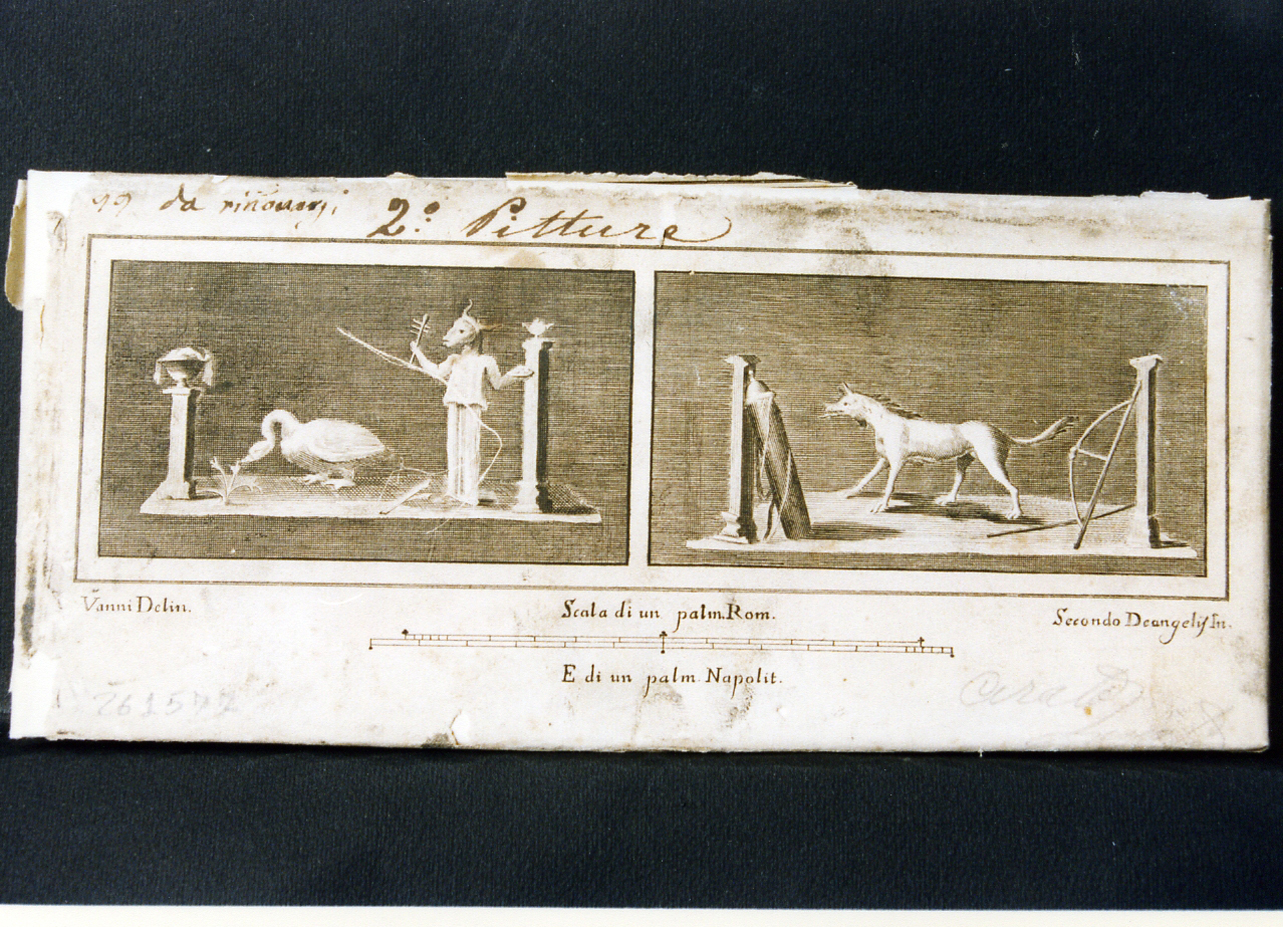 99 da rinovarsi
2.º Pitture
Vanni Delin.
Scala di un palm. Rom.
Secondo Deangelis In.
E di un palm. Napolit.